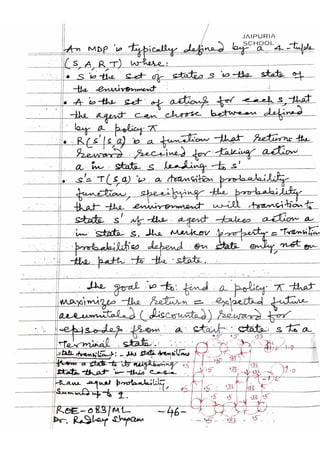 JAIPURIA
SCHOOL
An MDP is typically defined by a 4-tuple
(S, A, R, T) where:
• S is the set of states s is the state of
the environment
• A is the set of actions for each s, that
the agent can choose between defined
by a policy π
• R(s'|s,a) is a function that returns the
reward received for taking action
a in state s leading to s'
• s's T(s,a) is a transition probability
function, specifying the probability
that the environment will transition to
state s' if the agent takes action a
in state s. The Markov property = Transition
probabilities depend on state only, not on
the path to the state.
The goal is to find a policy π that
maximizes the return = expected future
accumulated (discounted) reward for
episodes from a start state s to a
Terminal state.
State transitions: - The state transitions
from a state to its neighboring
states that in this case
have equal probability,
Summed up to 1.
ROE-083/ML -46-
Dr. Radhey Shyam